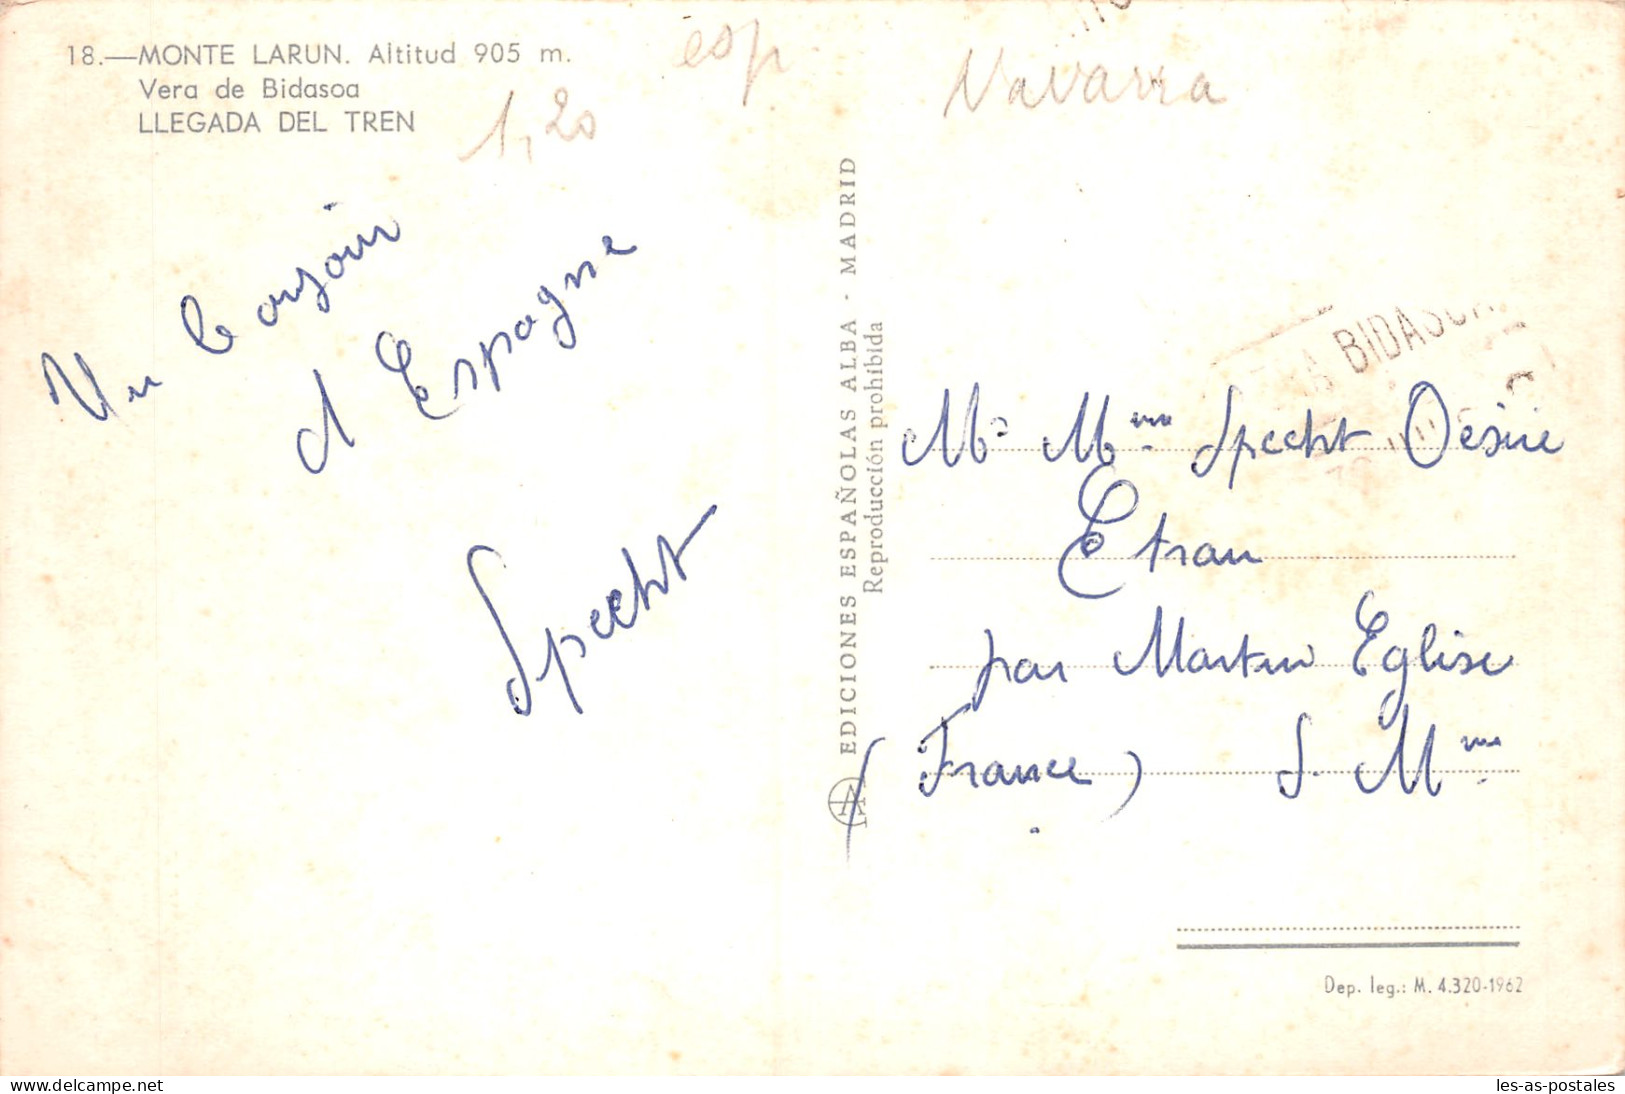 18.—MONTE LARUN. Altitud 905 m.
Vera de Bidasoa
LLEGADA DEL TREN
esp
1,20
Navarra
Un bonjour
d Espagne
Specht
EDICIONES ESPAÑOLAS ALBA - MADRID
Reproducción prohibida
BIDASOA
Mr Mme Specht Désiré
Etran
par Martin Eglise
(France) S. Mme
Dep. leg.: M. 4.320-1962
Visit Delcampe.net
les-as-postales